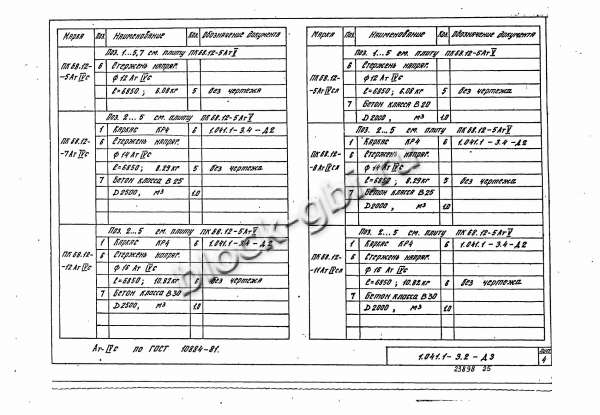 Марка Поз. Наименование Кол. Обозначение документа
Поз. 1...5,7 см. плиту ПК68.12-5АтV
ПК 68.12-
-5АтIVС
6 Стержень напряг.
ф 12 Ат IVС
ℓ=6850; 6.08кг 5 без чертежа
Поз. 2...5 см. плиту ПК 68.12-5АтV
ПК 68.12-
-7АтIVС
1 Каркас КР4 6 1.041.1-3.4-Д2
6 Стержень напряг.
ф 14 Ат IVС
ℓ=6850; 8.29кг 5 без чертежа
7 Бетон класса В 25
D2500, м3 1.0
Поз. 2...5 см. плиту ПК 68.12-5АтV
ПК 68.12-
-12АтIVС
1 Каркас КР4 6 1.041.1-3.4-Д2
6 Стержень напряг.
ф 16 Ат IVС
ℓ=6850; 10.82кг 6 без чертежа
7 Бетон класса В30
D2500, м3 1.0
Марка Поз. Наименование Кол. Обозначение документа
Поз. 1...5 см. плиту ПК68.12-5АтV
ПК 68.12-
-5АтIVСл
6 Стержень напряг.
ф 12 Ат IVС
ℓ=6850; 6.08кг 5 без чертежа
7 Бетон класса В20
D2000, м3 1.0
Поз. 2...5 см. плиту ПК 68.12-5АтV
ПК 68.12-
-8АтIVСл
1 Каркас КР4 6 1.041.1-3.4-Д2
6 Стержень напряг.
ф 14 Ат IVС
ℓ=6850; 8.29кг 5 без чертежа
7 Бетон класса В25
D2000, м3 1.0
Поз. 2...5 см. плиту ПК 68.12-5АтV
ПК 68.12-
-11АтIVСл
1 Каркас КР4 6 1.041.1-3.4-Д2
6 Стержень напряг.
ф 16 Ат IVС
ℓ=6850; 10.82кг 6 без чертежа
7 Бетон класса В30
D2000, м3 1.0
Ат-IVС по ГОСТ 10884-81.
1.041.1-3.2-Д3
Лист
4
23898 25
block-gbi.ru